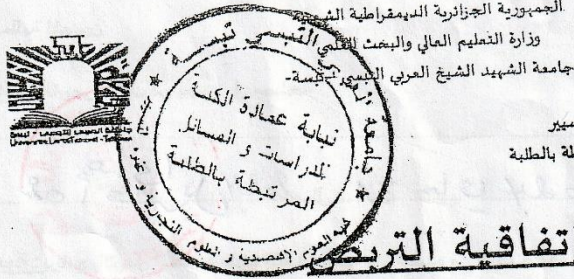 الجمهورية الجزائرية الديمقراطية الشعبية
وزارة التعليم العالي والبحث العلمي
جامعة الشهيد الشيخ العربي التبسي -تبسة-
جامعة العربي التبسي تبسة
نيابة عمادة الكلية
للدراسات و المسائل
المرتبطة بالطلبة
كلية العلوم الإقتصادية و العلوم التجارية و علوم
Université Larbi Tébessi - Tébessa
سيير
طة بالطلبة
تفاقية التربص